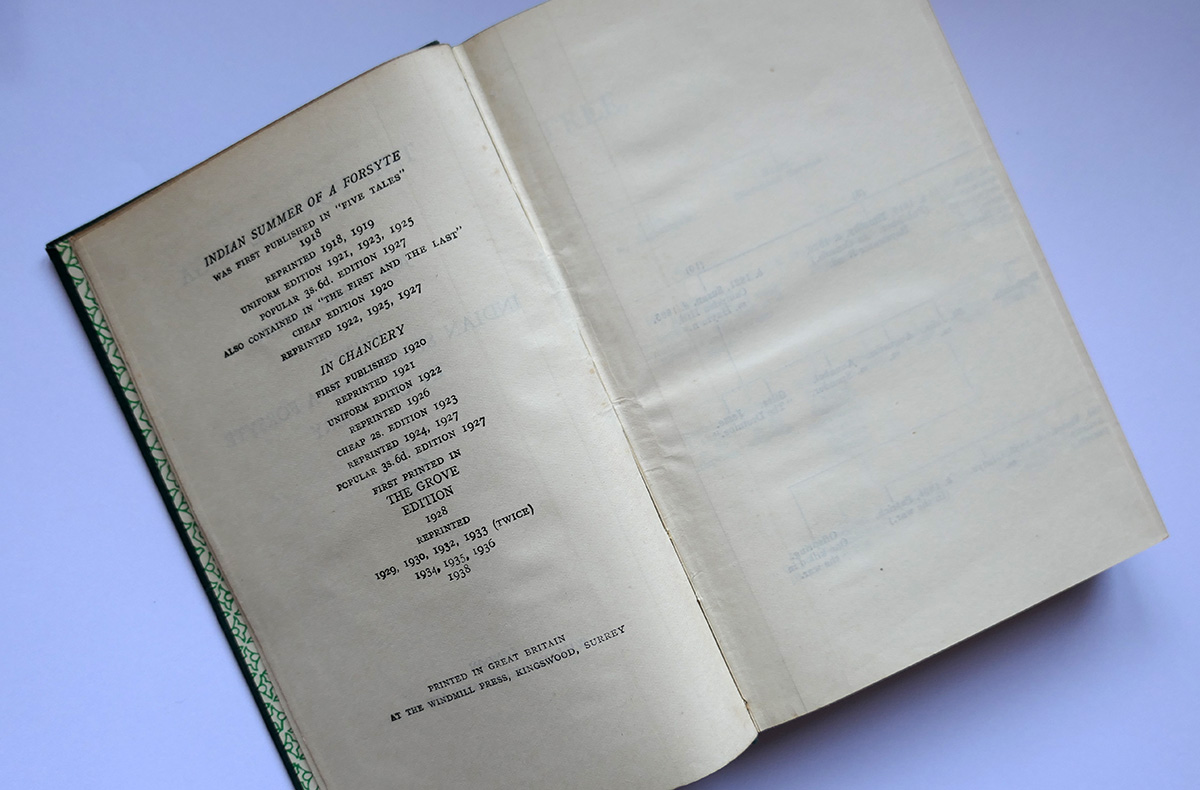 INDIAN SUMMER OF A FORSYTE
WAS FIRST PUBLISHED IN "FIVE TALES"
1918
REPRINTED 1918, 1919
UNIFORM EDITION 1921, 1923, 1925
POPULAR 3s.6d. EDITION 1927
ALSO CONTAINED IN "THE FIRST AND THE LAST"
CHEAP EDITION 1920
REPRINTED 1922, 1925, 1927
IN CHANCERY
FIRST PUBLISHED 1920
REPRINTED 1921
UNIFORM EDITION 1922
REPRINTED 1926
CHEAP 2s. EDITION 1923
REPRINTED 1924, 1927
POPULAR 3s.6d. EDITION 1927
FIRST PRINTED IN
THE GROVE
EDITION
1928
REPRINTED
1929, 1930, 1932, 1933 (TWICE)
1934, 1935, 1936
1938
PRINTED IN GREAT BRITAIN
AT THE WINDMILL PRESS, KINGSWOOD, SURREY